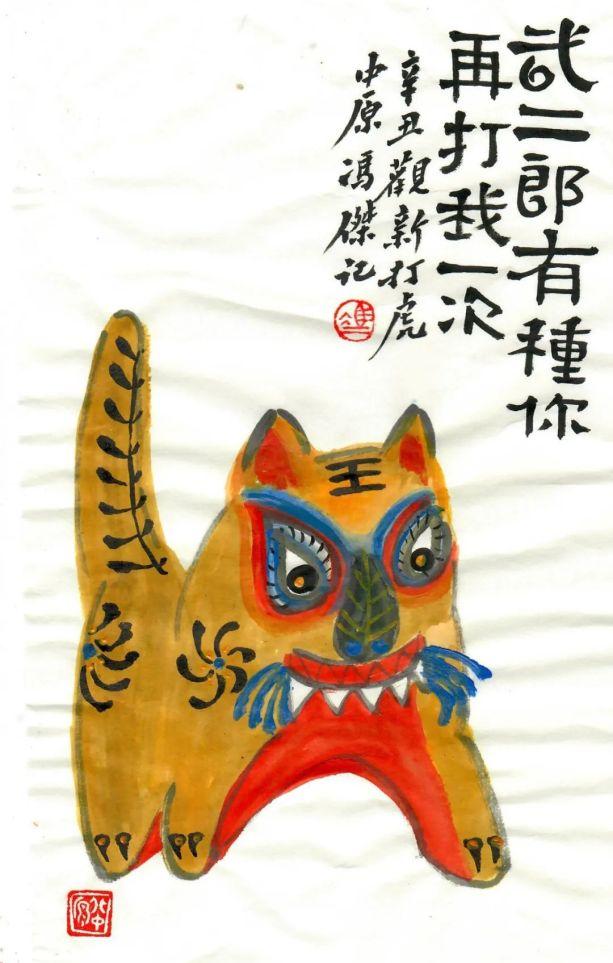 武二郎有種你
再打我一次
辛丑觀新打虎
中原馮傑記
王